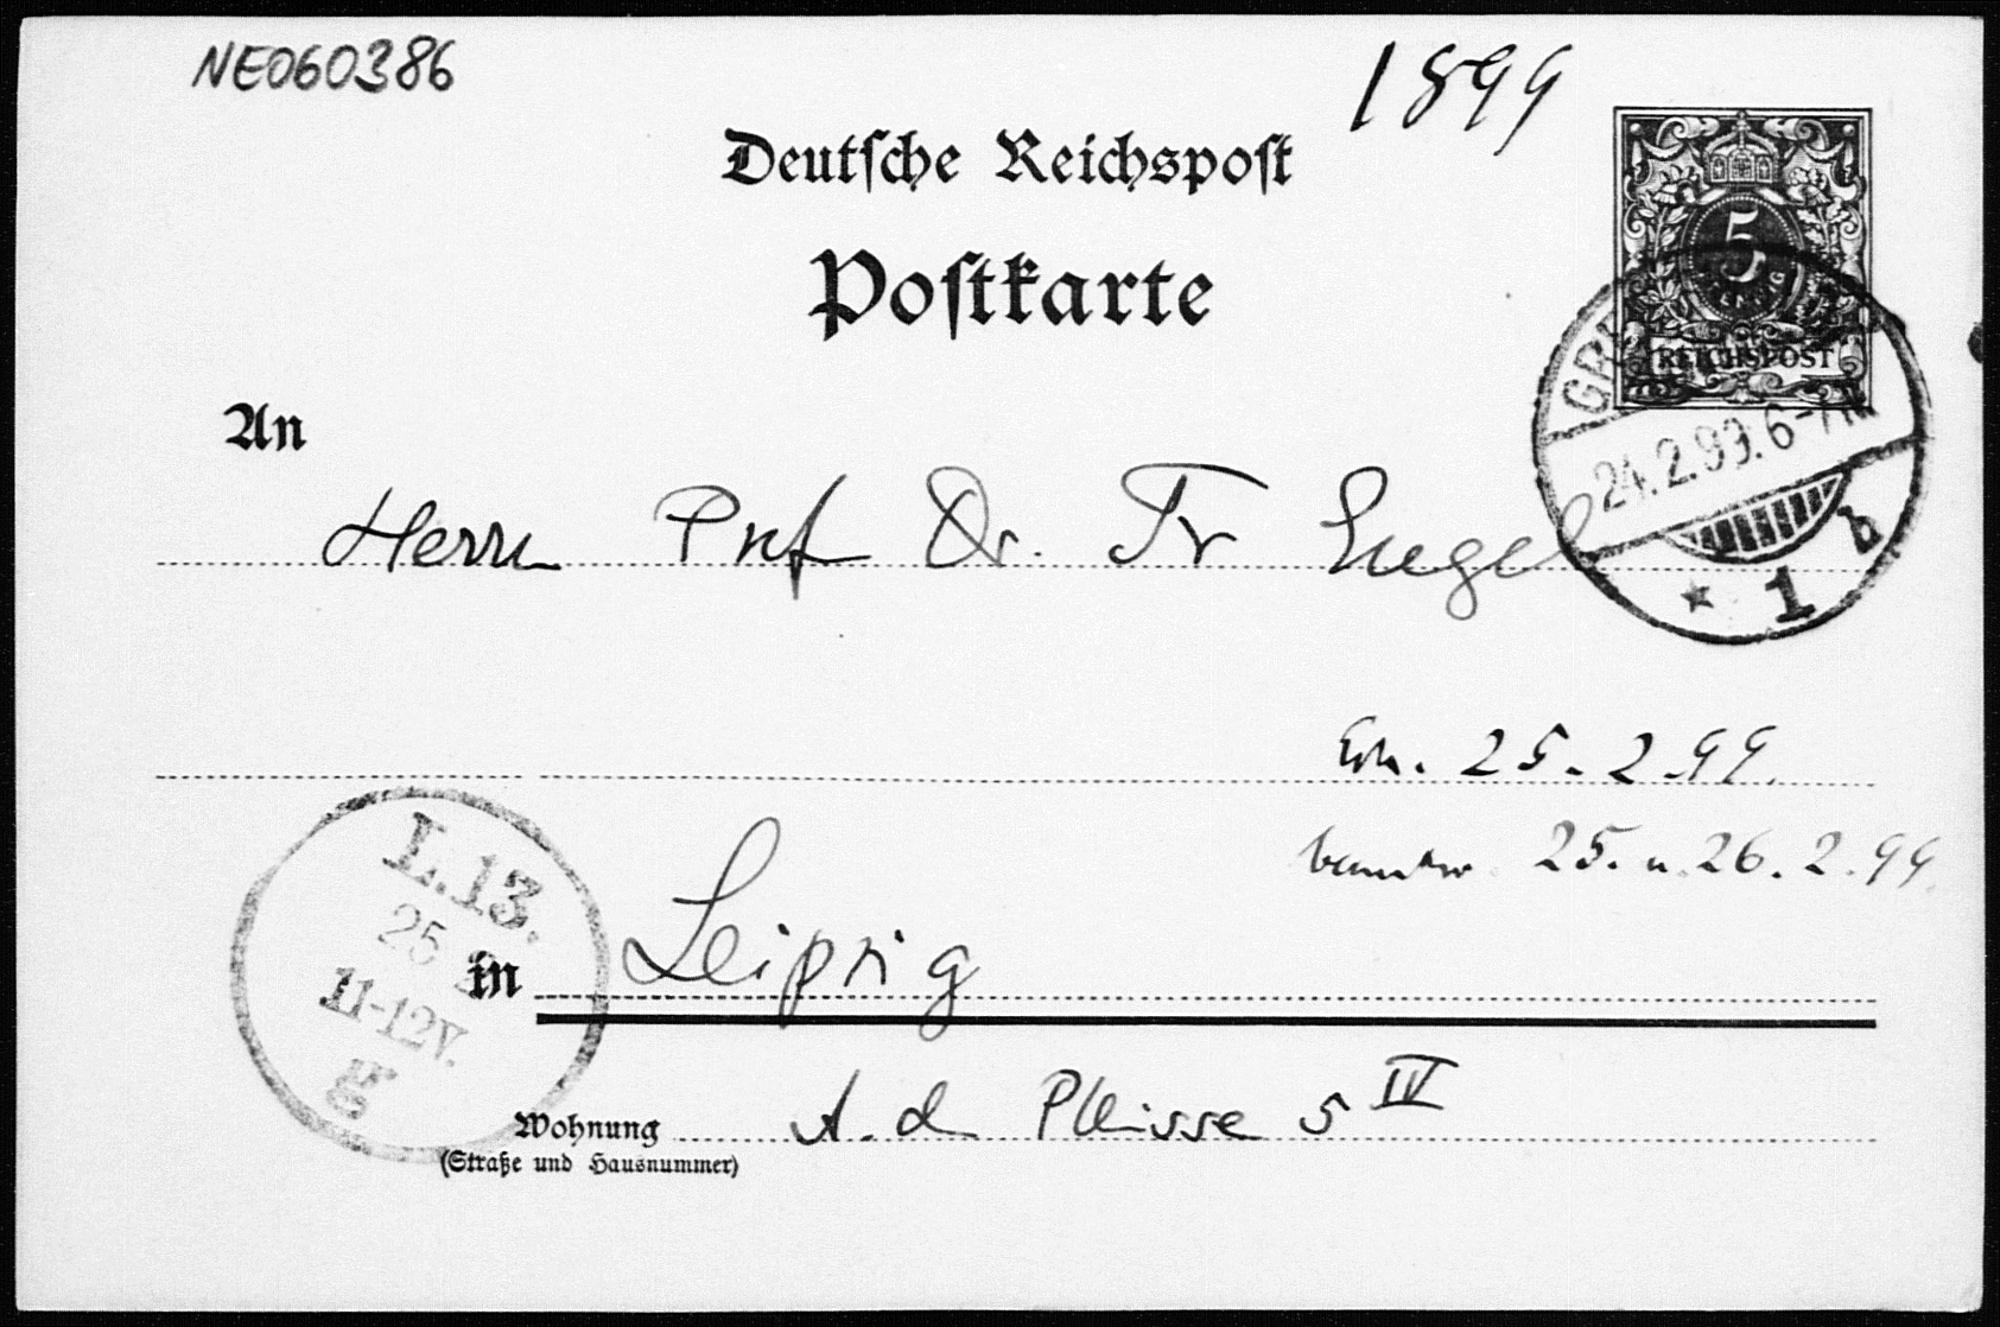 NE060386
1899
Deutsche Reichspost
5
REICHSPOST
Postkarte
24.2.99. 6-7
b
* 1
An
Herrn Prof Dr. Fr Engel
Erh. 25.2.99.
beantw. 25. u. 26.2.99.
L.13.
25
11-12V.
g
in Leipzig
Wohnung A. d Pleisse 5 IV
(Straße und Hausnummer)